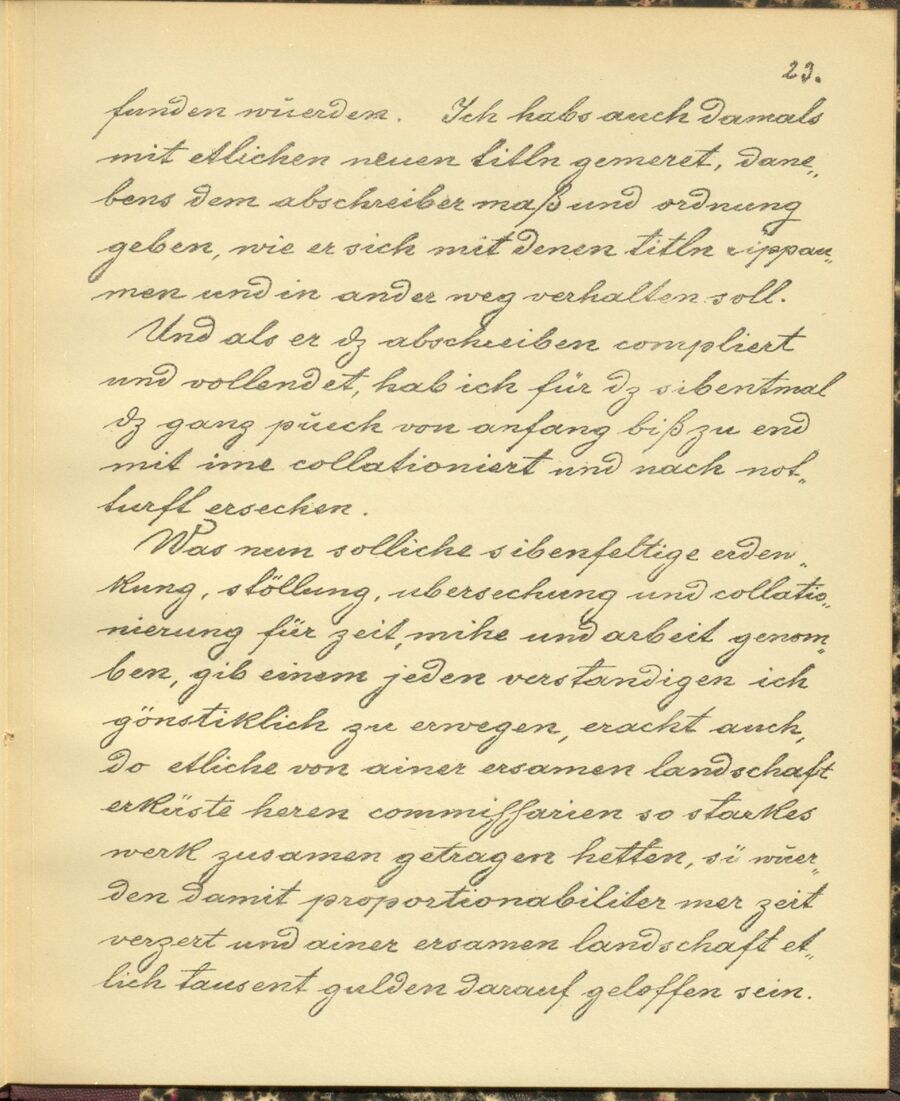 23.
funden wŭerden. Ich habs auch damals
mit etlichen neuen titln gemeret, dane„
bens dem abschreiber maß und ordnung
geben, wie er sich mit denen titln
men und in ander weg verhalten soll.
Und als er dz abschreiben compliert
und vollendet, hab ich für dz sibentmal
dz ganz pŭech von anfang biß zu end
mit ime collationiert und nach not„
turft ersechen.
Was nun solliche sibenfeltige erden„
kung, stöllung, ubersechung und collatio„
nierung für zeit, mihe und arbeit genom„
ben, gib einem jeden verstandigen ich
gönstiklich zu erwegen, eracht auch,
do etliche von ainer ersamen landschaft
erküste heren commissarien so starkes
werk zusamen getragen hetten, sü wŭer„
den damit proportionabiliter mer zeit
verzert und ainer ersamen landschaft et„
lich tausent gulden darauf geloffen sein.